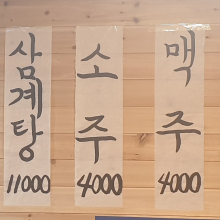 삼계탕
11000
소주
4000
맥주
4000